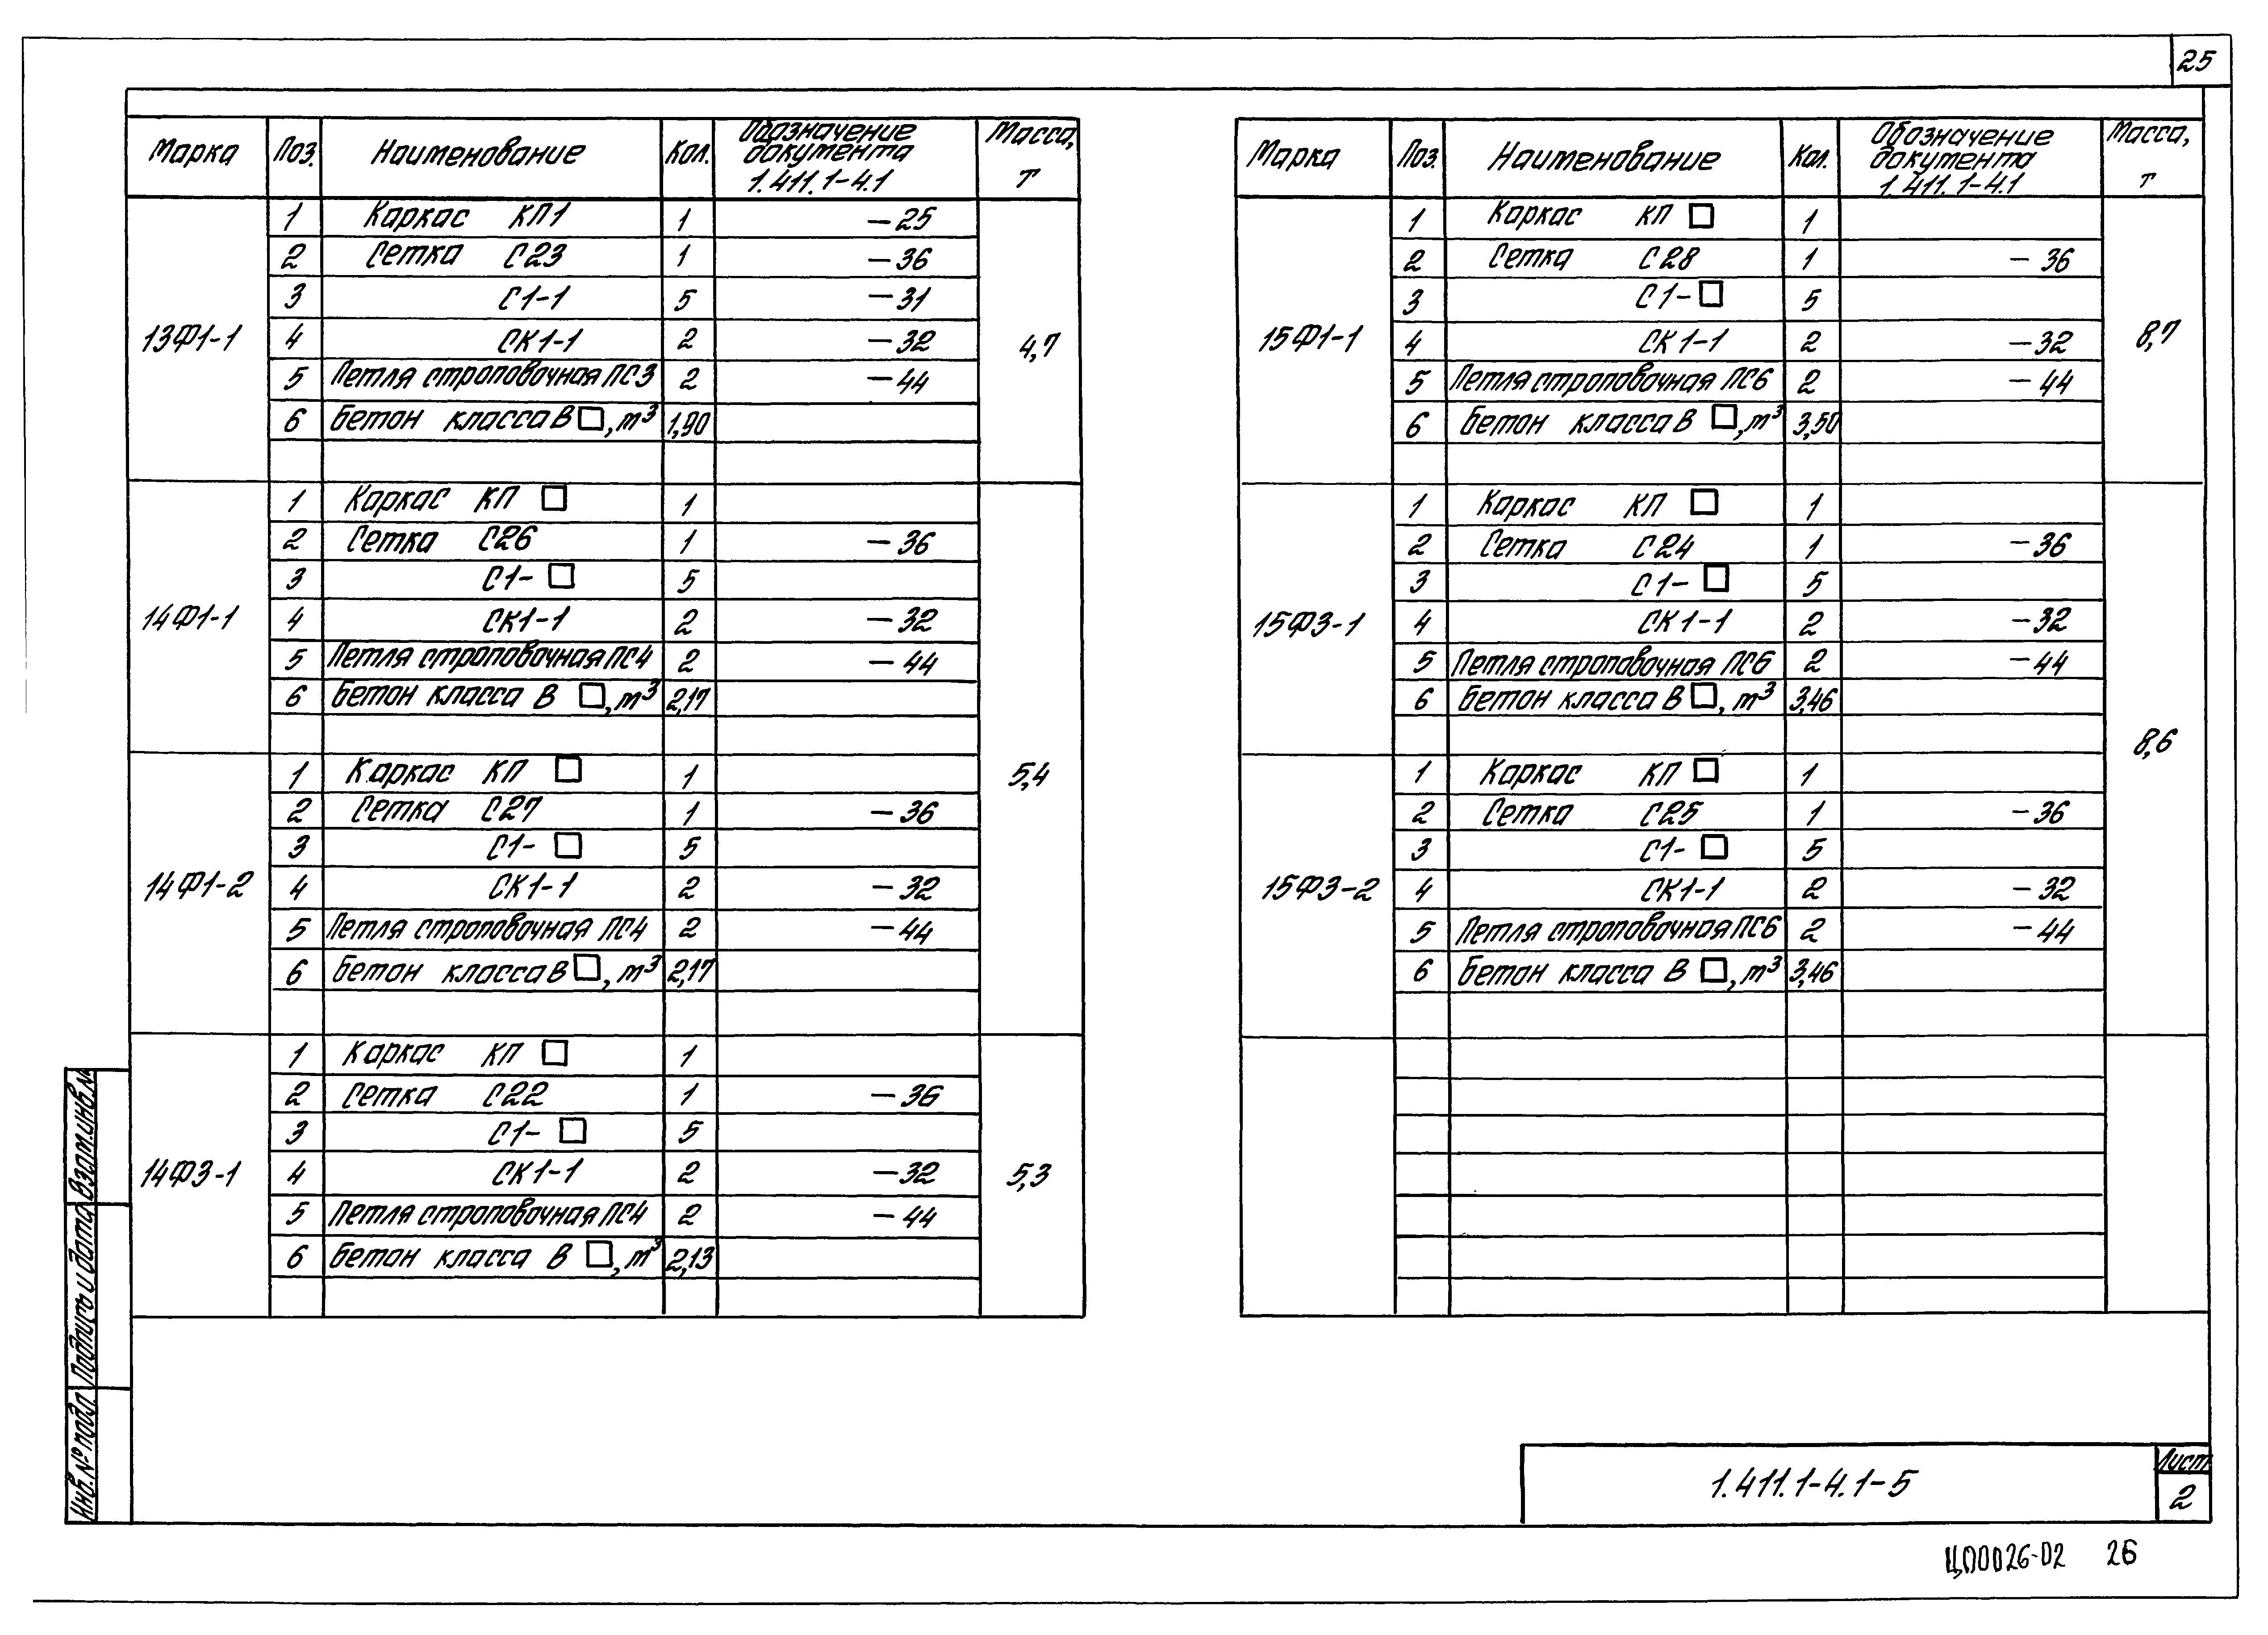 25
Марка Поз. Наименование Кол. Обозначение документа 1.411.1-4.1 Масса, т
13Ф1-1 4,7
1 Каркас КП1 1 -25
2 Сетка С23 1 -36
3 С1-1 5 -31
4 СК1-1 2 -32
5 Петля строповочная ПС3 2 -44
6 Бетон класса В □, м³ 1,90
14Ф1-1
1 Каркас КП □ 1
2 Сетка С26 1 -36
3 С1-□ 5
4 СК1-1 2 -32
5 Петля строповочная ПС4 2 -44
6 Бетон класса В □, м³ 2,17
5,4
14Ф1-2
1 Каркас КП □ 1
2 Сетка С27 1 -36
3 С1-□ 5
4 СК1-1 2 -32
5 Петля строповочная ПС4 2 -44
6 Бетон класса В □, м³ 2,17
14Ф3-1 5,3
1 Каркас КП □ 1
2 Сетка С22 1 -36
3 С1-□ 5
4 СК1-1 2 -32
5 Петля строповочная ПС4 2 -44
6 Бетон класса В □, м³ 2,13
Марка Поз. Наименование Кол. Обозначение документа 1.411.1-4.1 Масса, т
15Ф1-1 8,7
1 Каркас КП □ 1
2 Сетка С28 1 -36
3 С1-□ 5
4 СК1-1 2 -32
5 Петля строповочная ПС6 2 -44
6 Бетон класса В □, м³ 3,50
15Ф3-1
1 Каркас КП □ 1
2 Сетка С24 1 -36
3 С1-□ 5
4 СК1-1 2 -32
5 Петля строповочная ПС6 2 -44
6 Бетон класса В □, м³ 3,46
8,6
15Ф3-2
1 Каркас КП □ 1
2 Сетка С25 1 -36
3 С1-□ 5
4 СК1-1 2 -32
5 Петля строповочная ПС6 2 -44
6 Бетон класса В □, м³ 3,46
Взам.инв.№
Подпись и дата
Инв.№ подл.
1.411.1-4.1-5
Лист
2
ЦП0026-02 26